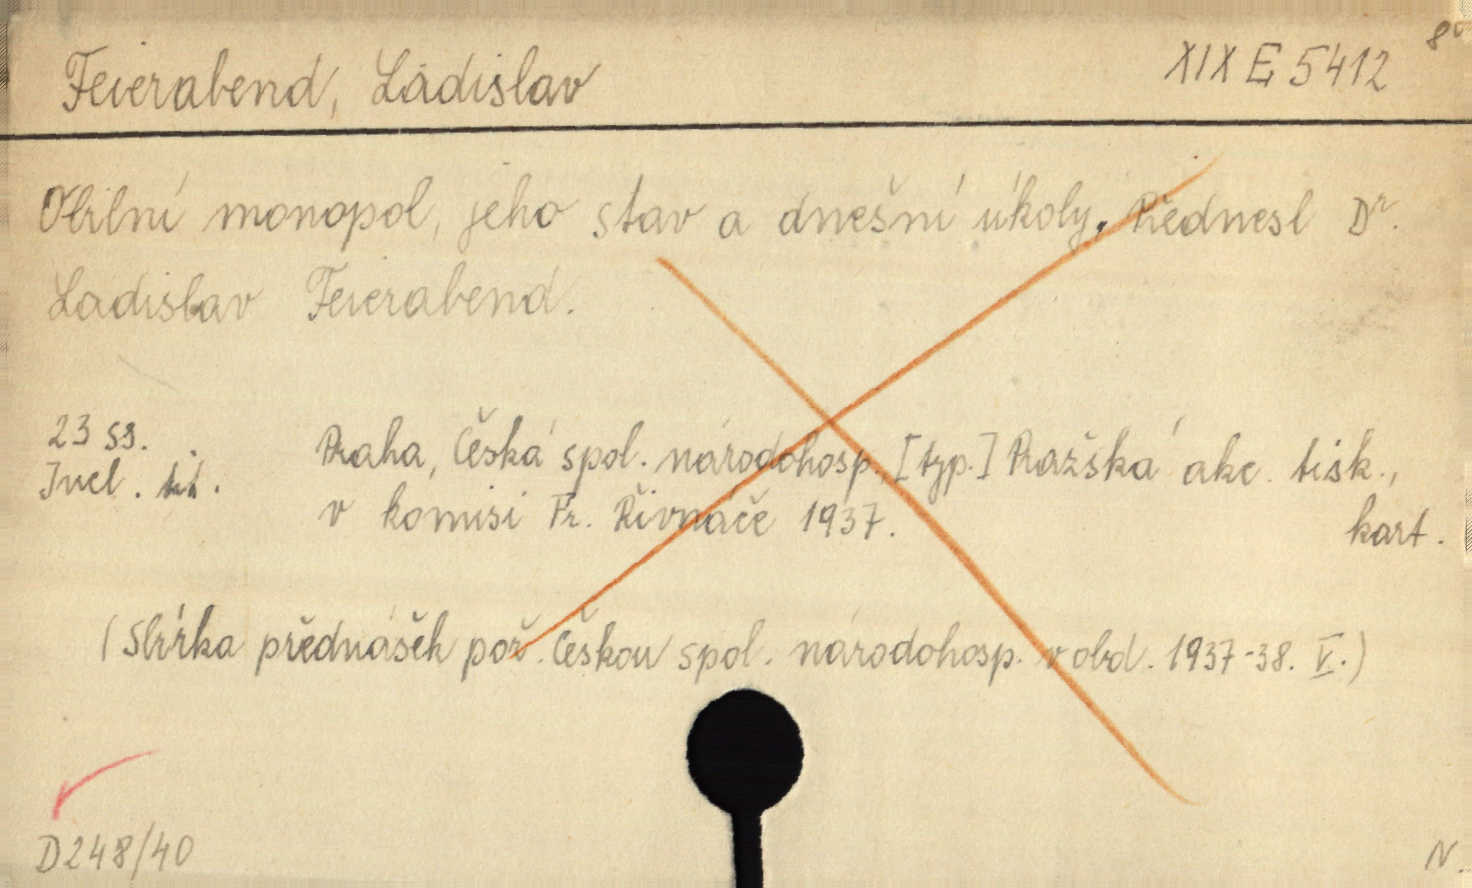 Feierabend, Ladislav
XIX E 5412
8°
Obilní monopol, jeho stav a dnešní úkoly. Přednesl Dr.
Ladislav Feierabend.
23 ss.
Incl. tit.
Praha, Česká spol. národohosp., [typ.] Pražská akc. tisk.,
v komisi Fr. Řivnáče 1937.
kart.
(Sbírka přednášek poř. Českou spol. národohosp. v obd. 1937-38. V.)
D248/40
N.